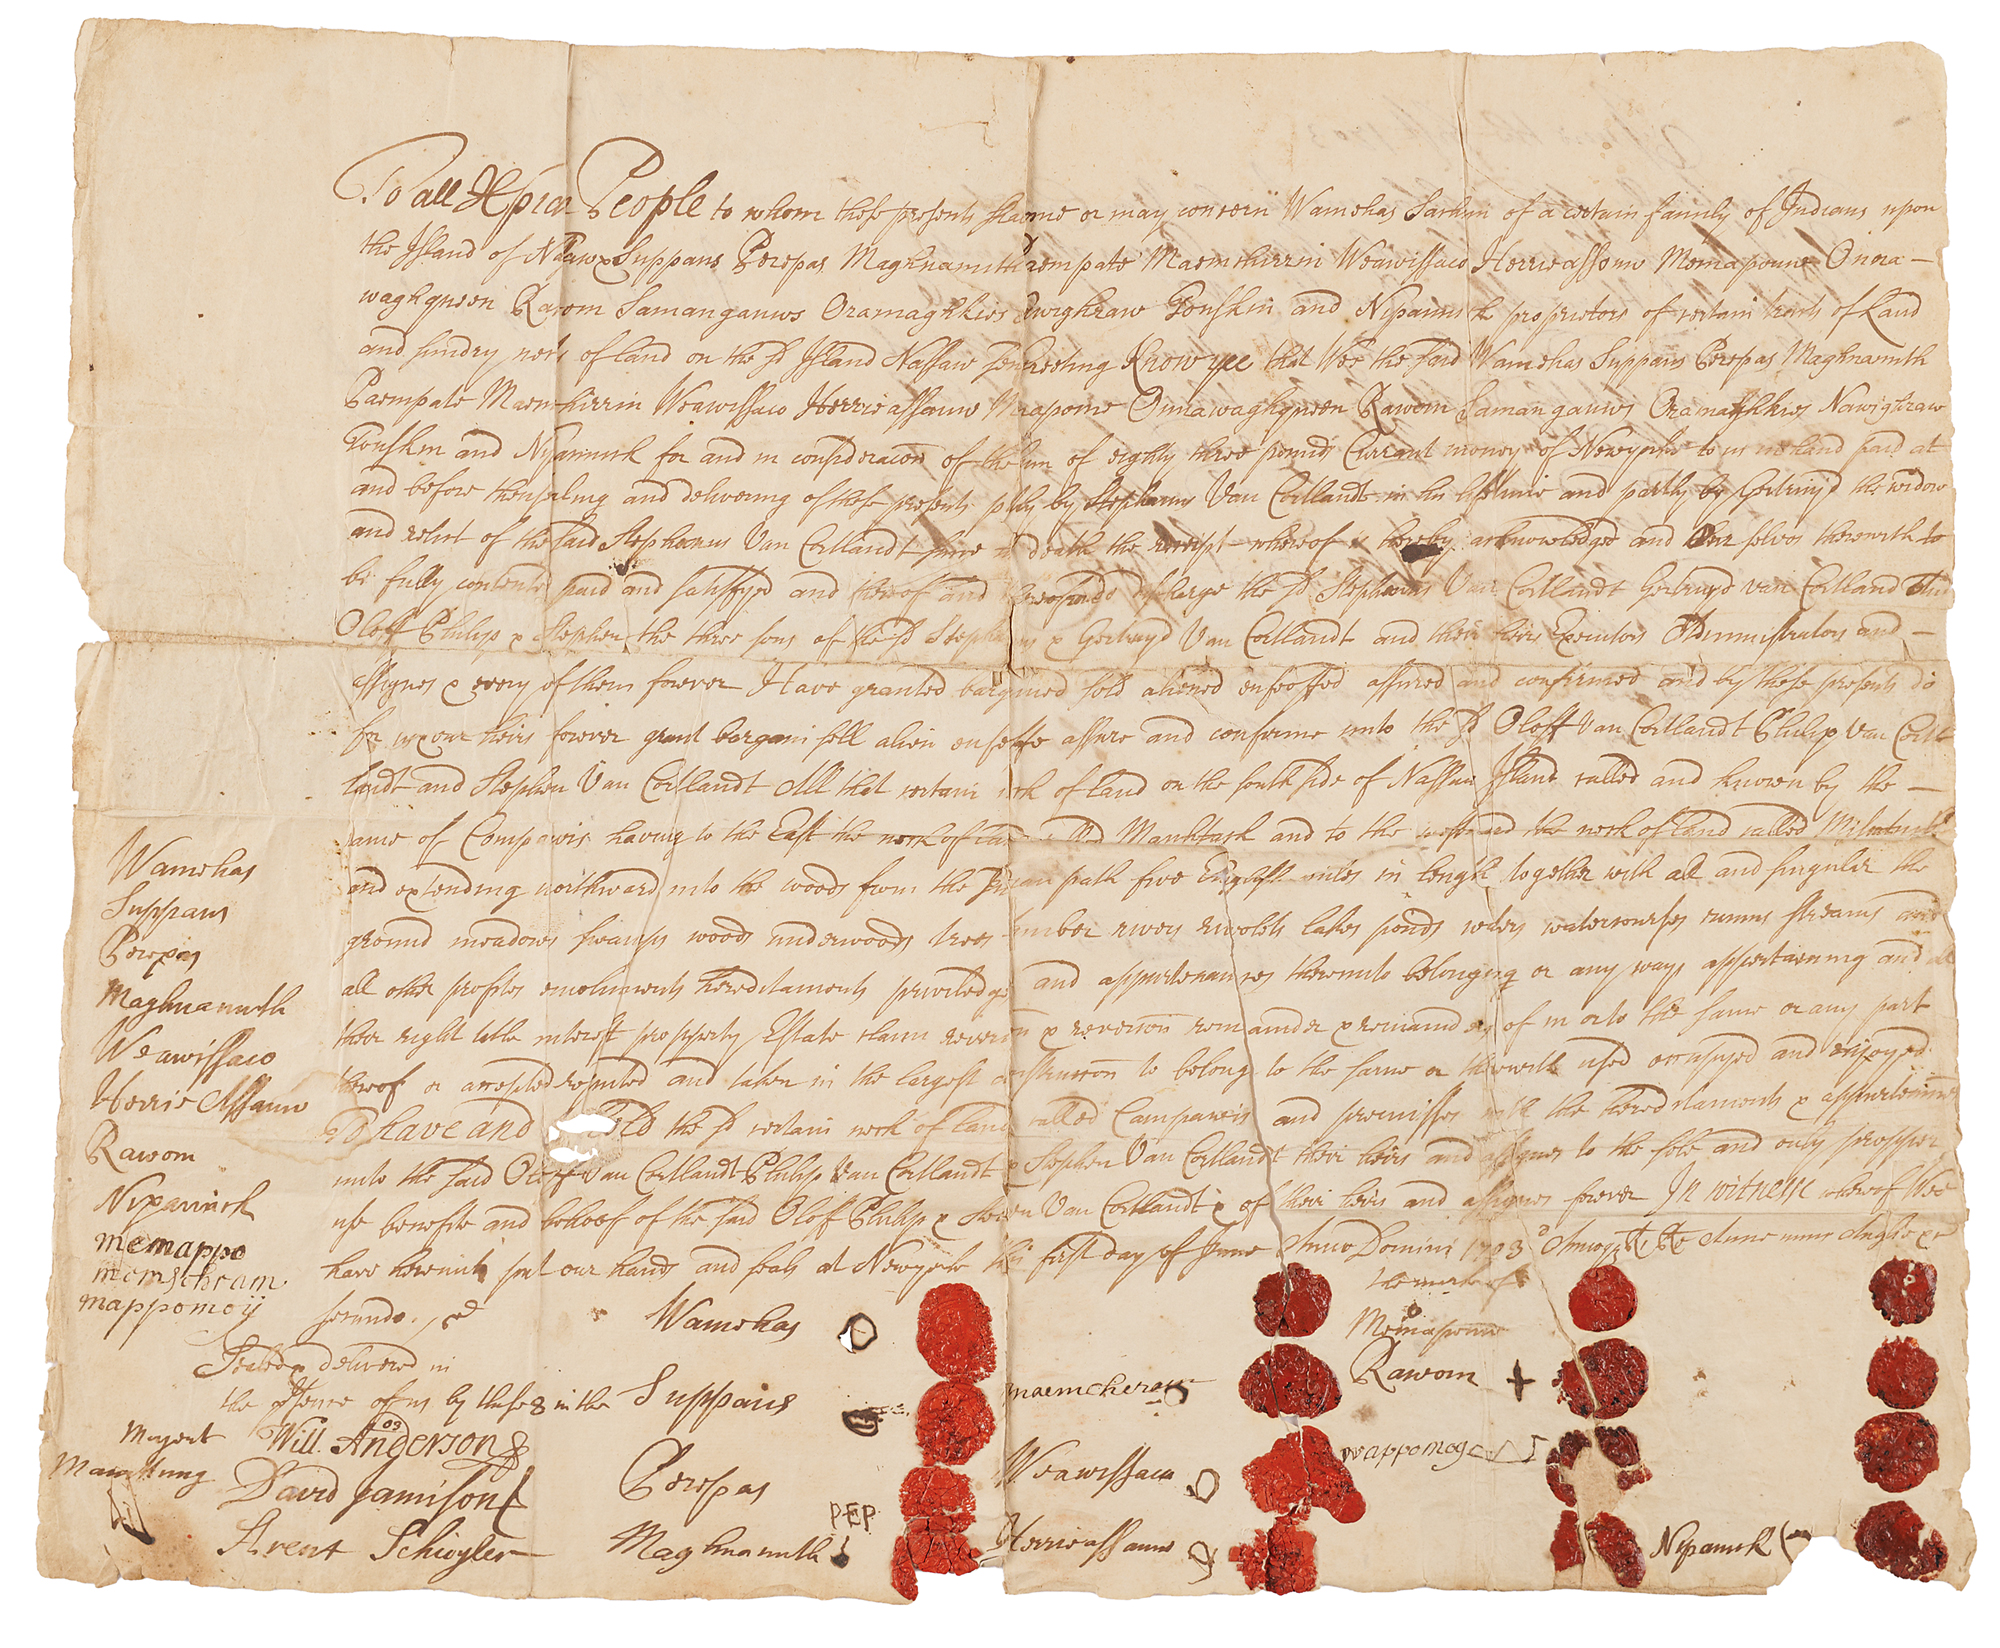 To all Xpian People to whom these presents shall come or may concern Wamehas Sachim of a certain family of Indians upon
the Island of Nassaw Suppaus Perepas Maghnamith Paempate Maemchirrin Weawissaco Herrieassouw Memapome Onna-
waghqueen Rawom Samangauws Oramaghkies Nawighraw Tonshin and Nipanick proprietors of certain tracts of Land
and sundry necks of land on the sd Island Nassaw send greeting Know yee that Wee the said Wamehas Suppaus Perepas Maghnamith
Paempate Maemchirrin Weawissaco Herrieassouw Memapome Onnawaghqueen Rawom Samangauws Oramaghkies Nawighraw
Tonshin and Nipanick for and in consideracon of the sum of eighty three pounds Currant money of Newyorke to us in hand paid at
and before thensealing and delivering of these presents ptly by Stephanus Van Cortlandt in his lifetime and partly by Gertruyd the widow
and relict of the said Stephanus Van Cortlandt since his death the receipt whereof is hereby acknowledged and their selves therewith to
be fully contented paid and satisfyed and thereof and discharge the sd Stephanus Van Cortlandt Gertruyd van Cortland And
Oloff Philip & Stephen the three sons of the sd Stephanus & Gertruyd Van Cortlandt and their heirs Executors Administrators and -
assignes & every of them forever Have granted bargained sold aliened enfeoffed assured and confirmed and by these presents do
for us & our heirs forever grant bargain sell alien enfeoffe assure and confirme unto the sd Oloff Van Cortlandt Philip Van Cort
landt and Stephen Van Cortlandt All that certain neck of land on the south side of Nassaw Island called and known by the -
name of Compawis having to the East the neck of land called Manetuck and to the westward the neck of land called
and extending northward into the woods from the Indian path five English miles in length together with all and singular the
ground meadows swamps woods underwoods trees timber rivers rivolets lakes ponds waters watercourses runns streams and
all other profites emoluments hereditaments priviledges and appurtenances thereunto belonging or any ways appertaining and all
their right title interest property Estate claim revercon & revercons remainder & remainders of in or to the same or any part
thereof or accepted reputed and taken in the largest construccon to belong to the same or therewith used occupyed and enjoyed
To have and to hold the sd certain neck of land called Campaweis and premisses with the hereditaments & appurtenances
unto the said Oloff Van Cortlandt Philip Van Cortlandt & Stephen Van Cortlandt their heirs and assignes to the sole and only propper
use benefite and behoof of the said Olof Philip & Steven Van Cortlandt & of their heirs and assignes forever In witnesse whereof Wee
have hereunto sent our hands and seals at Newyorke this first day of June Anno Domini 1703 Annoqe Rs Re Annae nunc Angliae &c
secundo
Wamehas
Suppaus
Perepas
Maghnamith
Weawissaco
Herrie Assaun
Rawom
Nipanick
memappo
memscheam
mappomoy
Sealed & delivered in
the psence of us by these 8 in the
Will. Anderson
David Jamison
Arent Schuyler
Wamehas
Suppaus
Perepas
PEP
Maghnamith
maemcheraw
Weawissaca
Herrieassaune
the mark of
Memapome
Rawom
wappomog
Nipanick